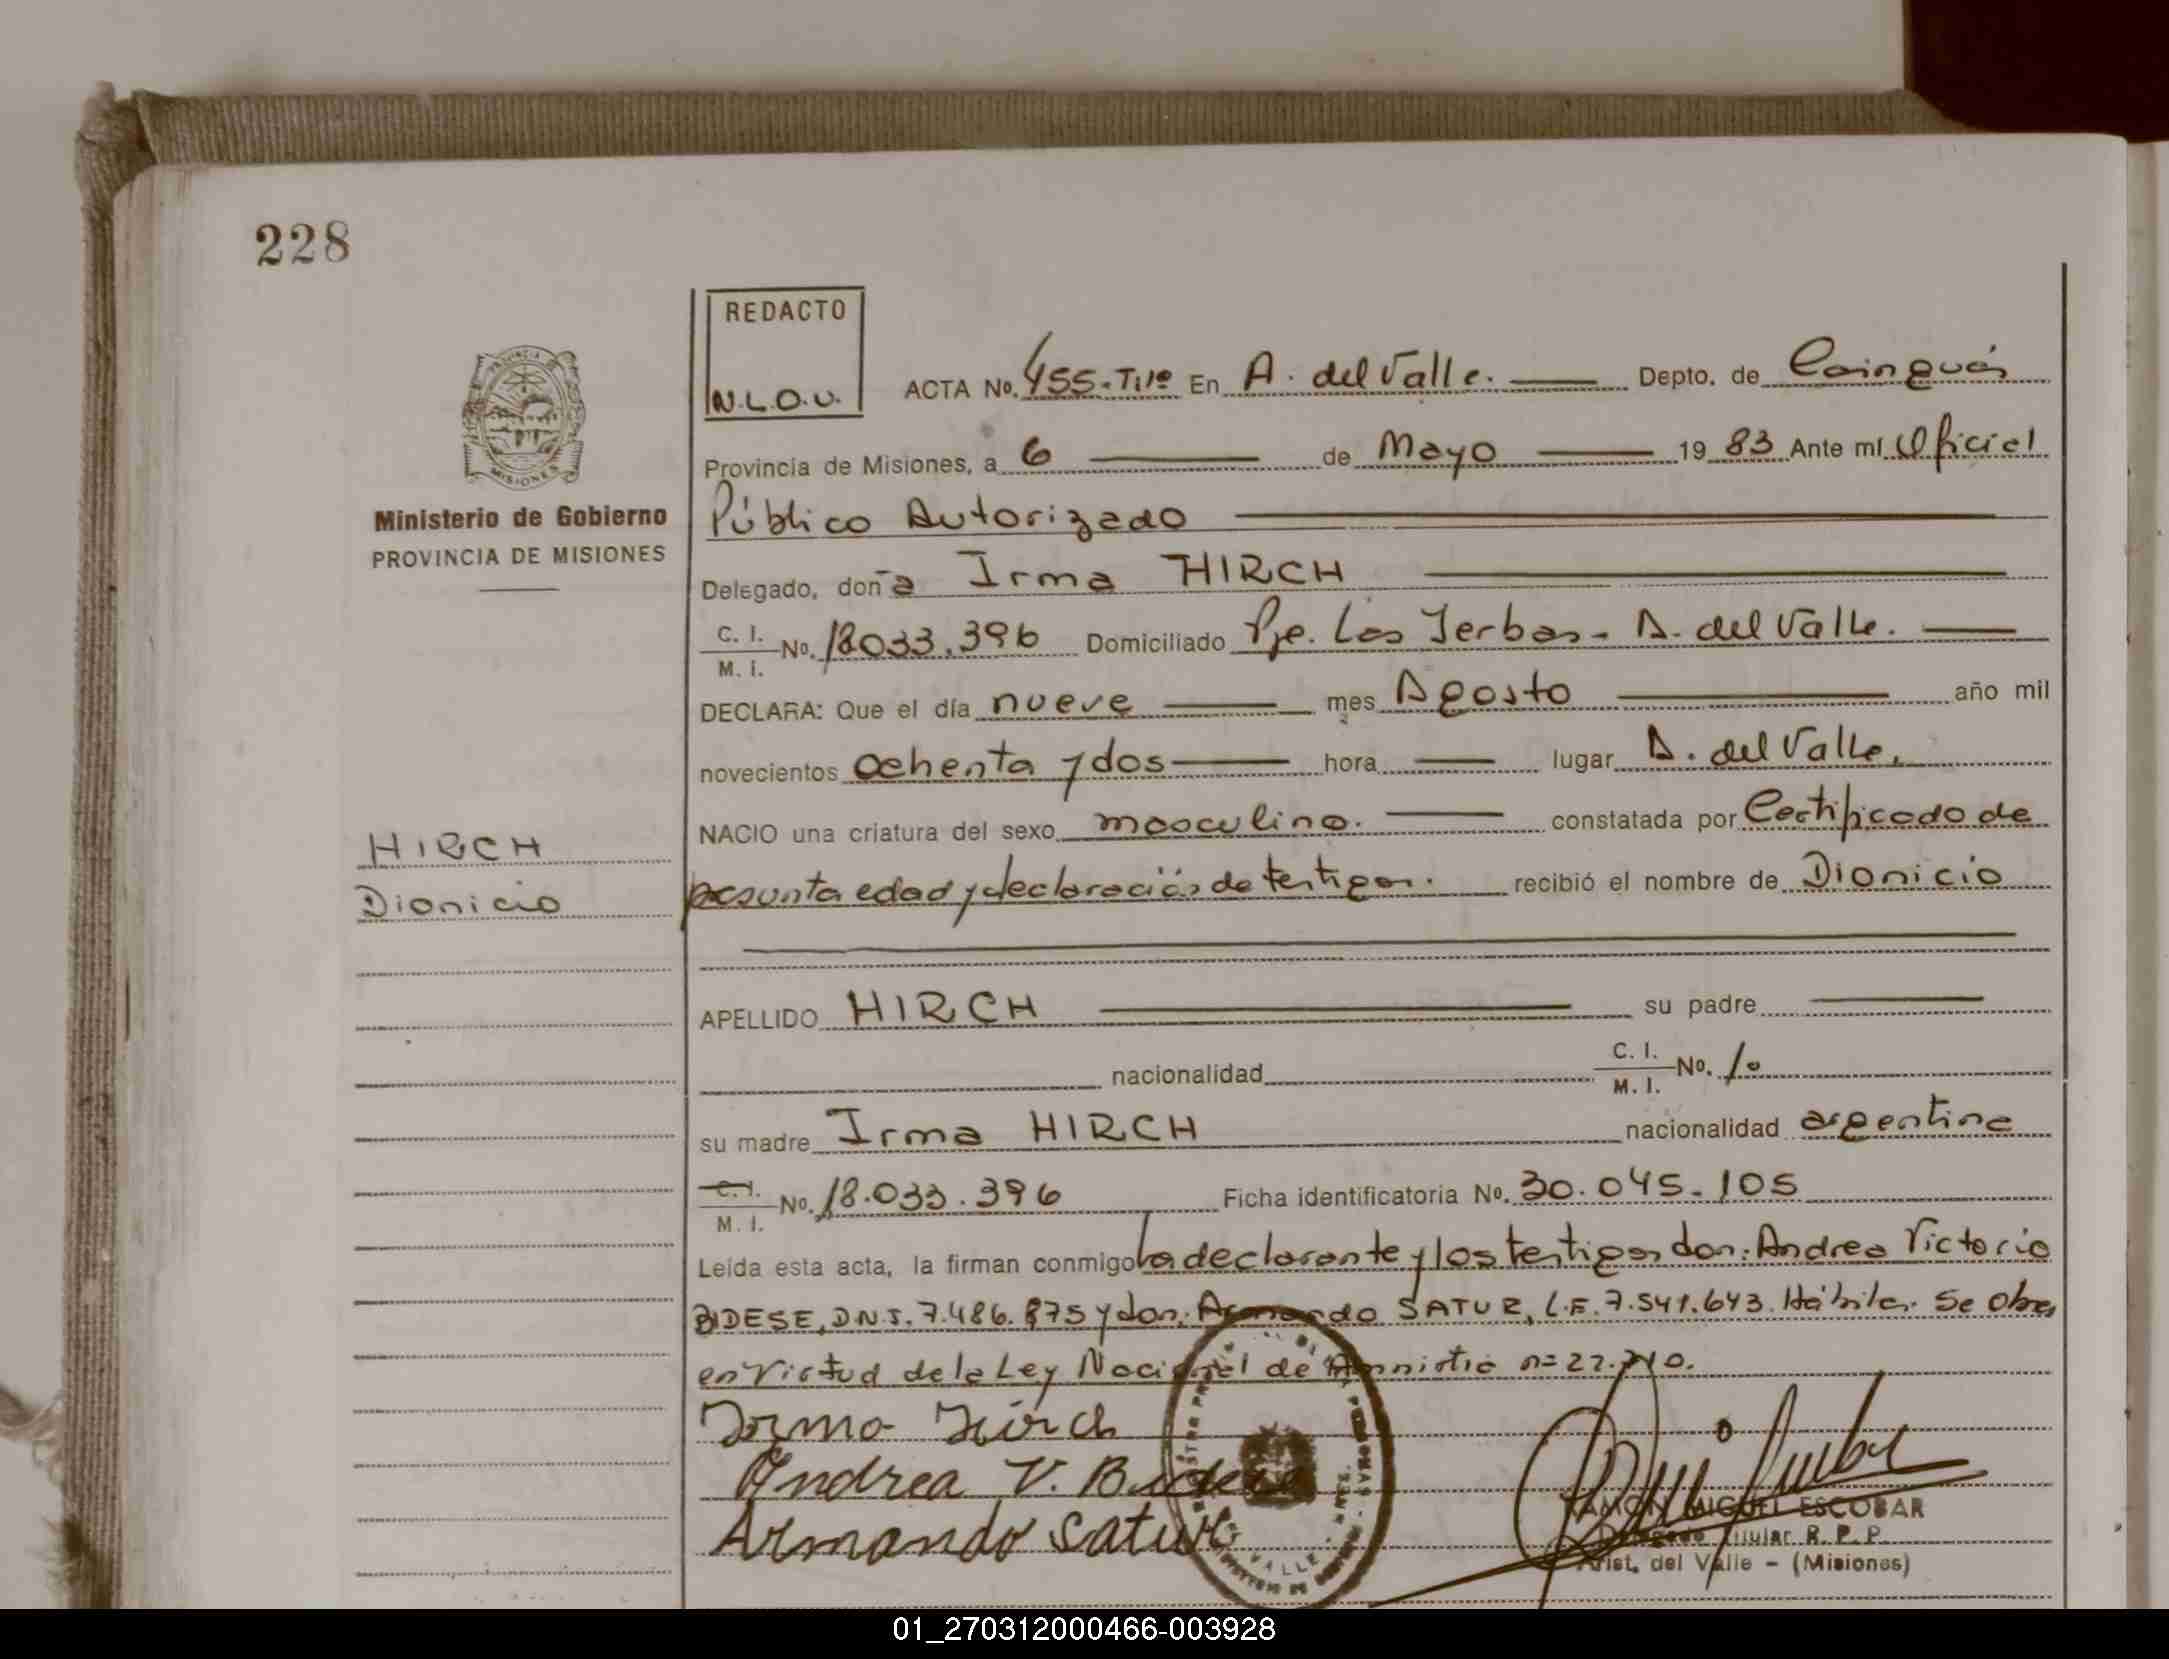 228
REDACTO
N.L.O.U.
ACTA No. 455-Tºıº En A. del Valle. Depto. de Cainguás
Provincia de Misiones, a 6 de Mayo 19 83 Ante mí Oficial
Público Autorizado
Ministerio de Gobierno
PROVINCIA DE MISIONES
Delegado, doña Irma HIRCH
C. I.
M. I. No. 18033.396 Domiciliado Pje. Las Yerbas - A. del Valle.
DECLARA: Que el día nueve mes Agosto año mil
novecientos ochenta y dos hora lugar A. del Valle.
NACIO una criatura del sexo masculino. constatada por Certificado de
presunta edad y declaración de testigos. recibió el nombre de Dionicio
HIRCH
Dionicio
APELLIDO HIRCH su padre
nacionalidad C. I.
M. I. No.
su madre Irma HIRCH nacionalidad argentina
C. I.
M. I. No. 18.033.396 Ficha identificatoria No. 30.045.105
Leída esta acta, la firman conmigo la declarante y los testigos don: Andrea Victorio
BIDESE, D.N.I. 7.486.875 y don: Armando SATUR, L.E. 7.541.643. Hábiles. Se obra
en virtud de la Ley Nacional de Amnistia nº 22.710.
Irma Hirch
Andrea V. Bidese
Armando Satur
RAMON MIGUEL ESCOBAR
Delegado Titular R. P. P.
Arist. del Valle - (Misiones)
PROVINCIA DE
MISIONES
VALLE
01_270312000466-003928